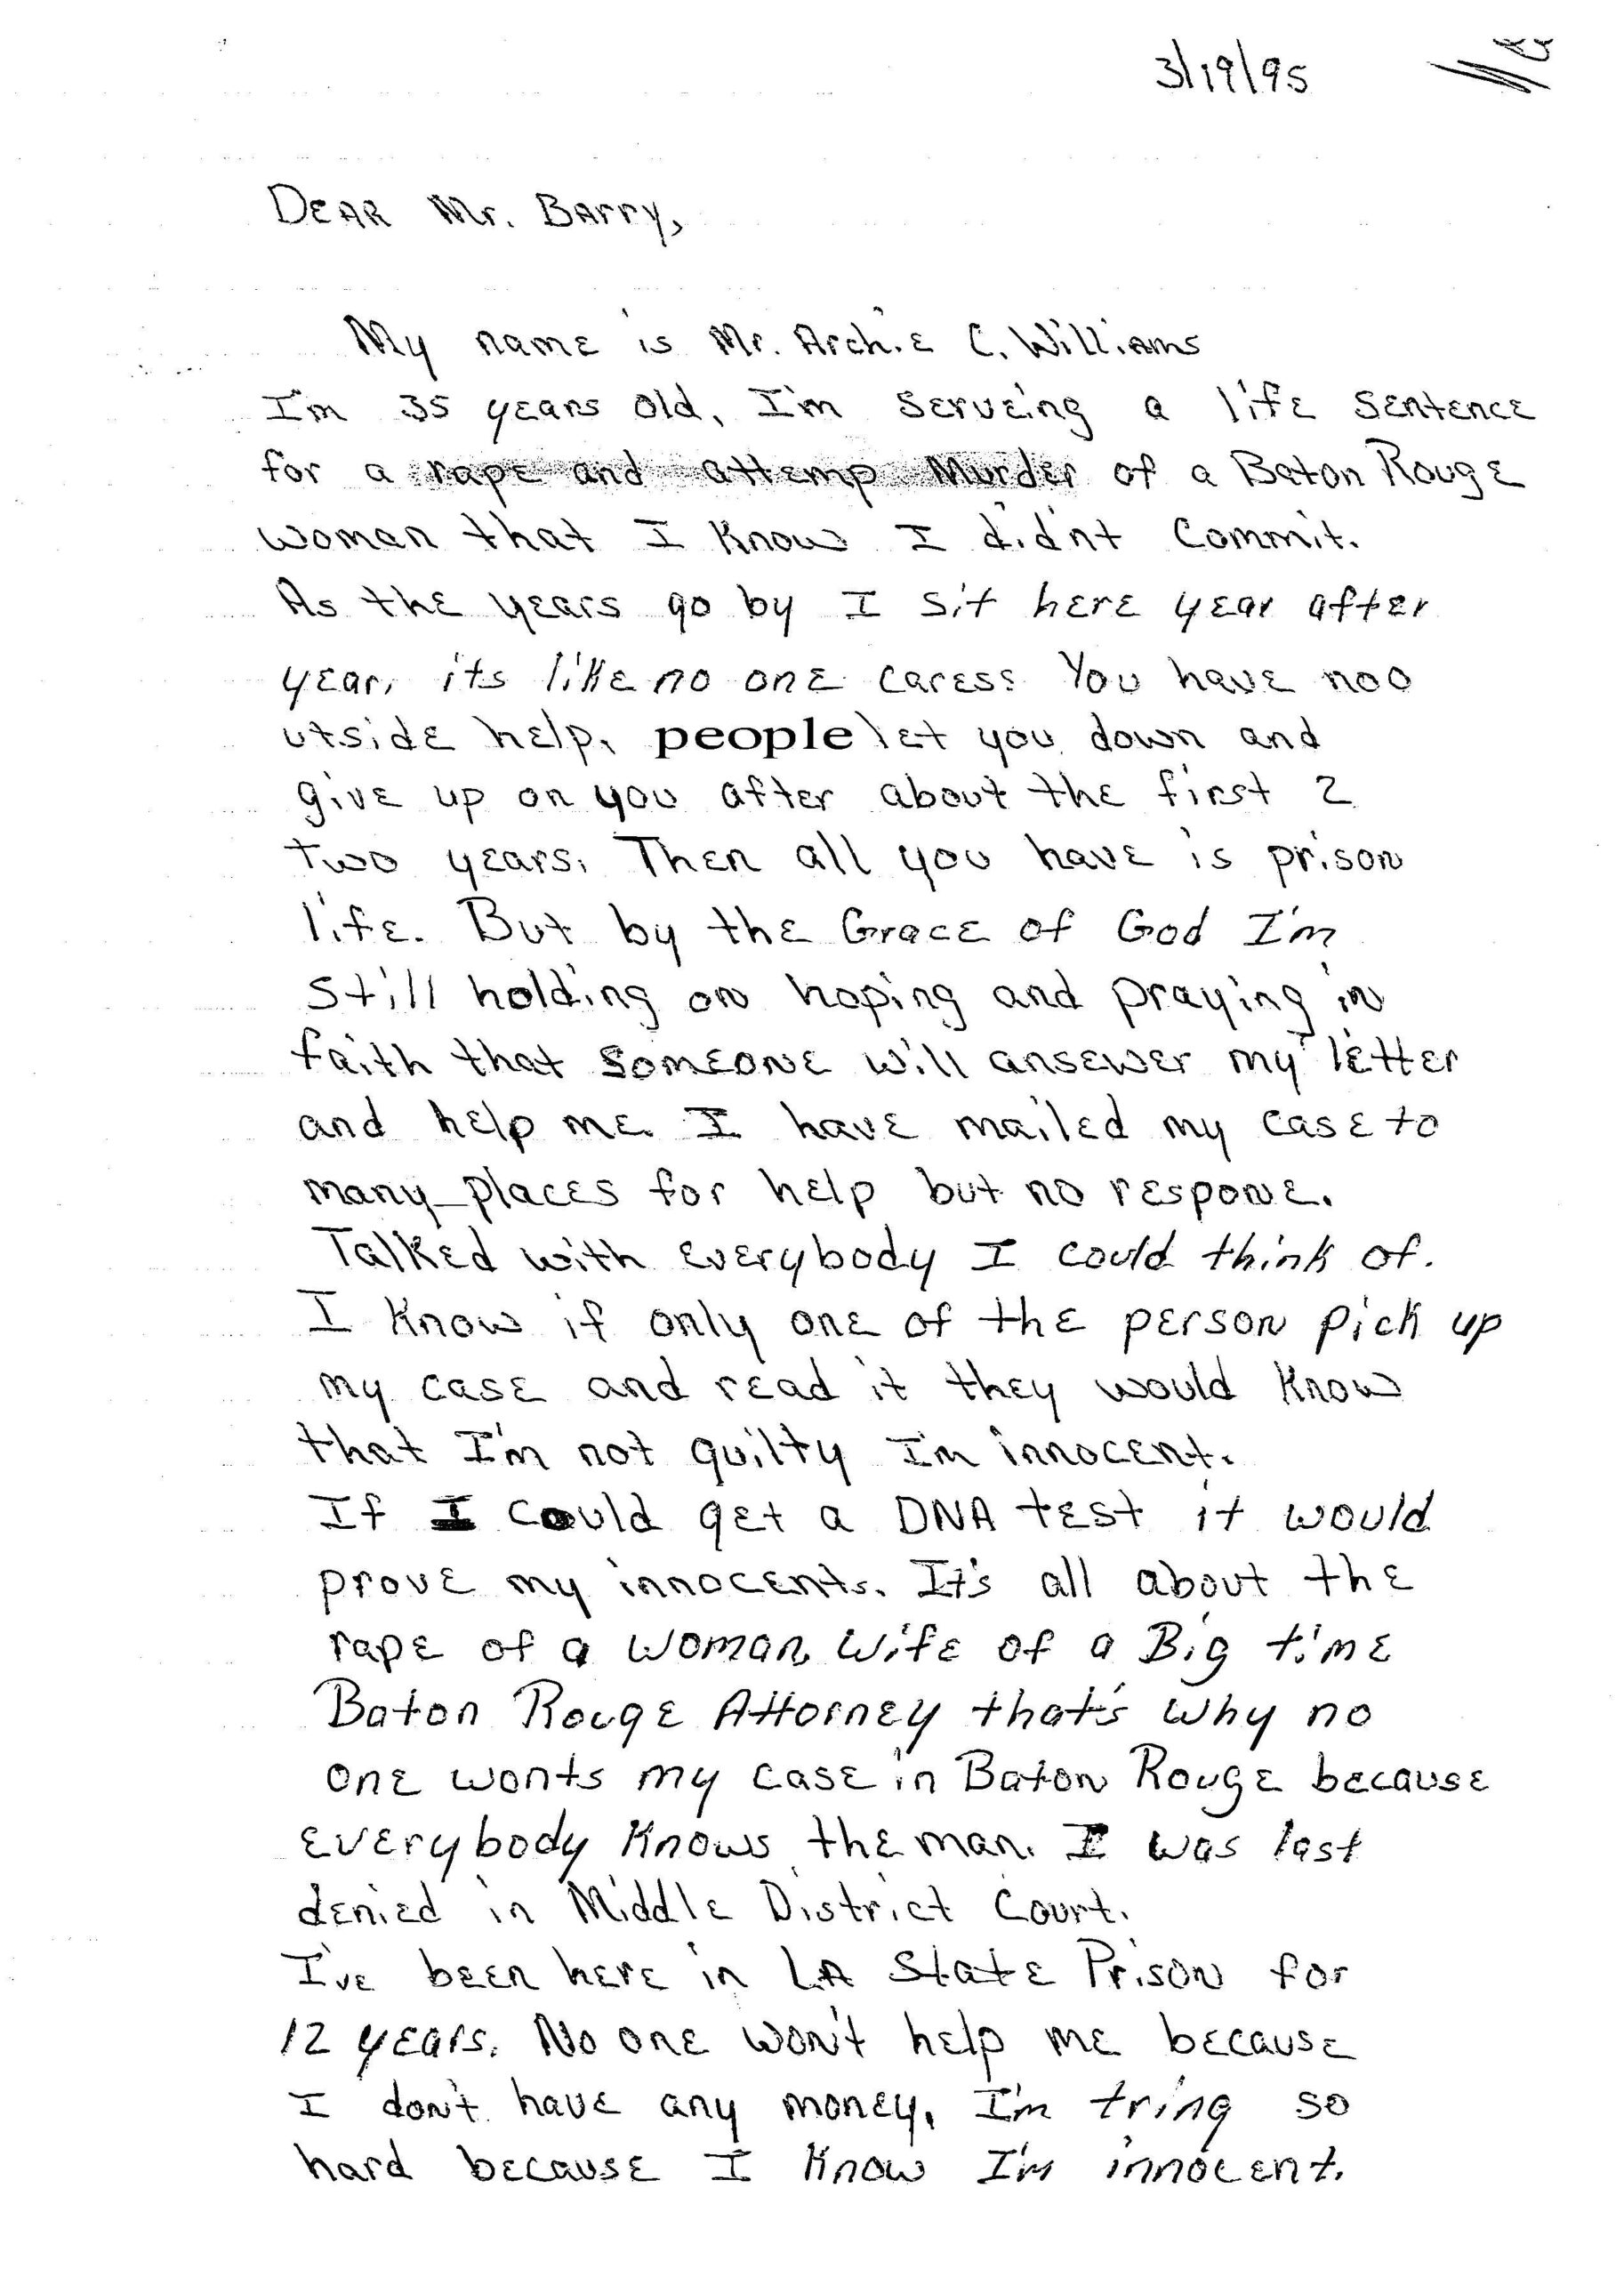 3/19/95
Dear Mr. Barry,
My name is Mr. Archie C. Williams
I'm 35 years old, I'm serveing a life sentence
for a rape and attemp Murder of a Baton Rouge
woman that I know I didnt commit.
As the years go by I sit here year after
year, its like no one caress You have noo
utside help, people let you down and
give up on you after about the first 2
two years, Then all you have is prison
life. But by the Grace of God I'm
still holding on hoping and praying in
faith that someone will ansewer my letter
and help me. I have mailed my case to
many places for help but no respone.
Talked with everybody I could think of.
I know if only one of the person pick up
my case and read it they would know
that I'm not guilty I'm innocent.
If I could get a DNA test it would
prove my innocents. It's all about the
rape of a woman, wife of a Big time
Baton Rouge Attorney that's why no
one wonts my case in Baton Rouge because
everybody knows the man. I was last
denied in Middle District Court.
I've been here in LA State Prison for
12 years. No one won't help me because
I don't have any money, I'm tring so
hard because I know I'm innocent.